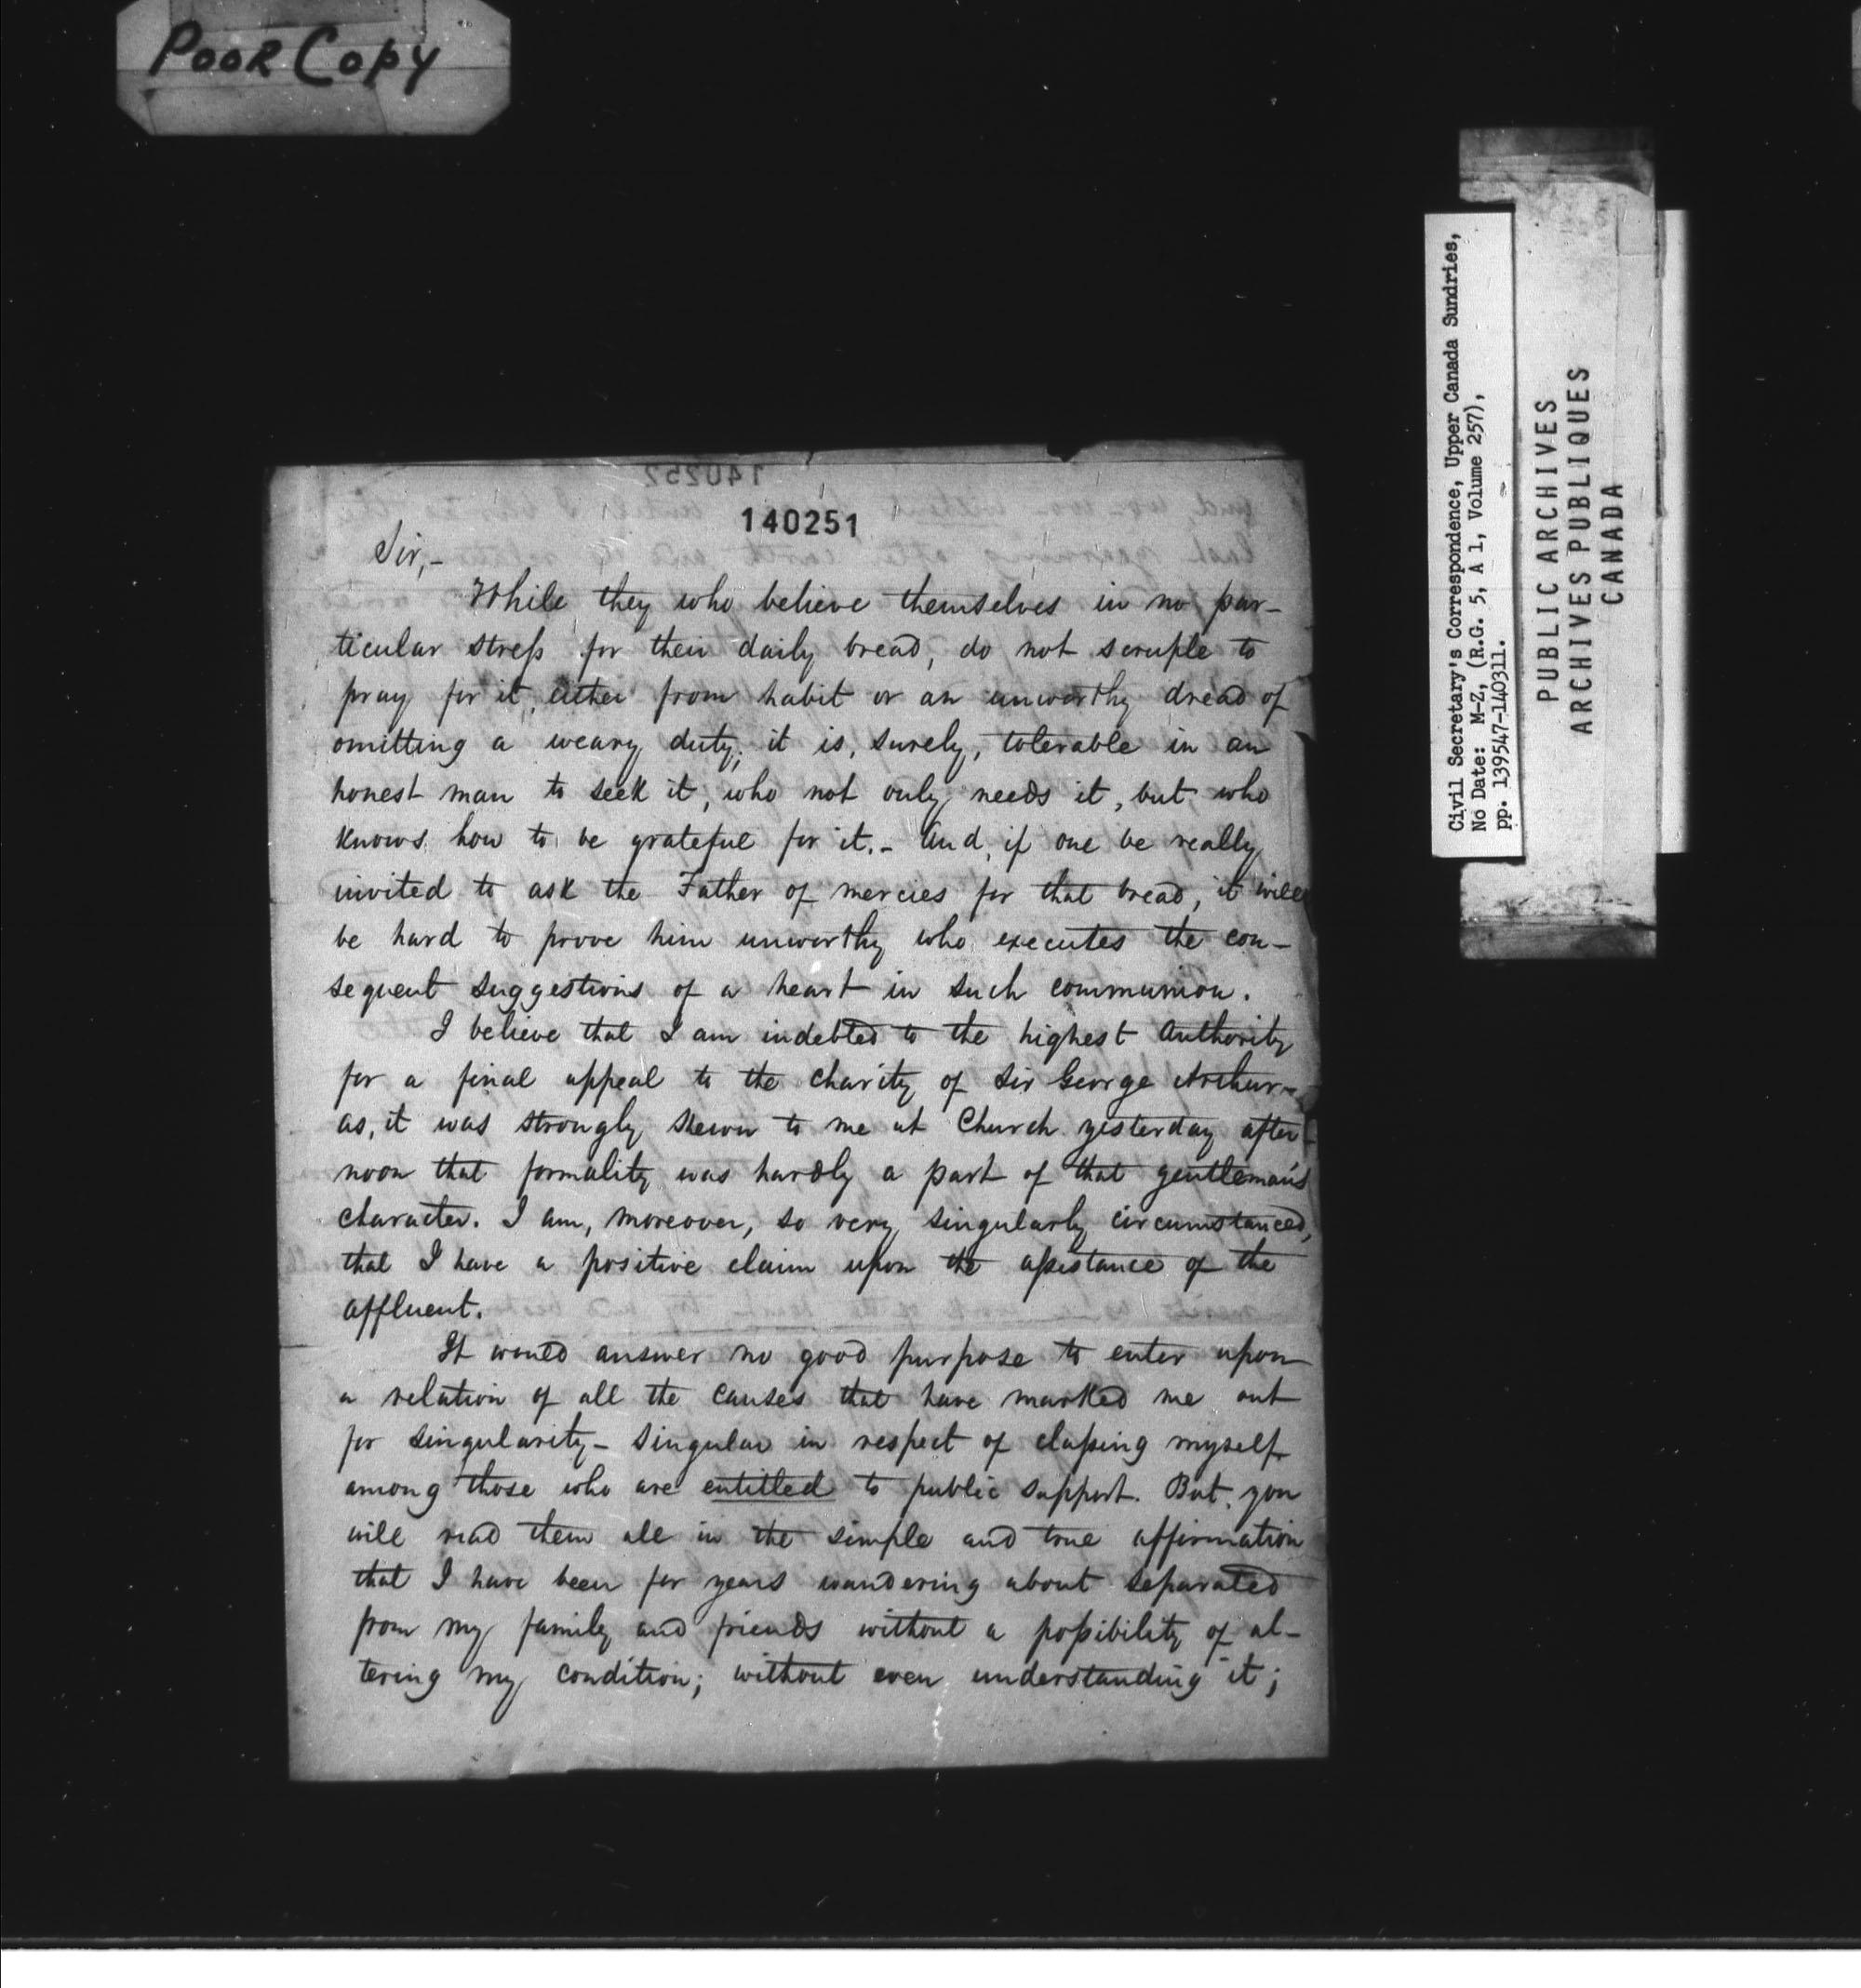 POOR COPY
140252
140251
Sir,-
While they who believe themselves in no par-
ticular stress for their daily bread, do not scruple to
pray for it, either from habit or an unworthy dread of
omitting a weary duty; it is, surely, tolerable in an
honest man to seek it, who not only needs it, but who
knows how to be grateful for it.- And, if one be really
invited to ask the Father of mercies for that bread, it will
be hard to prove him unworthy who executes the con-
sequent suggestions of a heart in such communion.
I believe that I am indebted to the highest Authority
for a final appeal to the charity of Sir George Arthur-
as, it was strongly shewn to me at Church yesterday after-
noon that formality was hardly a part of that gentleman's
character. I am, moreover, so very singularly circumstanced,
that I have a positive claim upon the assistance of the
affluent.
It would answer no good purpose to enter upon
a relation of all the causes that have marked me out
for singularity- singular in respect of classing myself
among those who are entitled to public support. But, you
will read them all in the simple and true affirmation
that I have been for years wandering about separated
from my family and friends without a possibility of al-
tering my condition; without even understanding it;
Civil Secretary's Correspondence, Upper Canada Sundries,
No Date: M-Z, (R.G. 5, A 1, Volume 257),
pp. 139547-140311.
PUBLIC ARCHIVES
ARCHIVES PUBLIQUES
CANADA